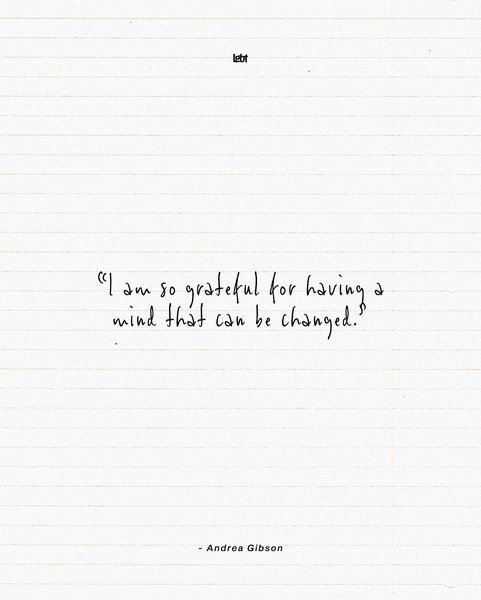 “I am so grateful for having a
mind that can be changed.”
- Andrea Gibson